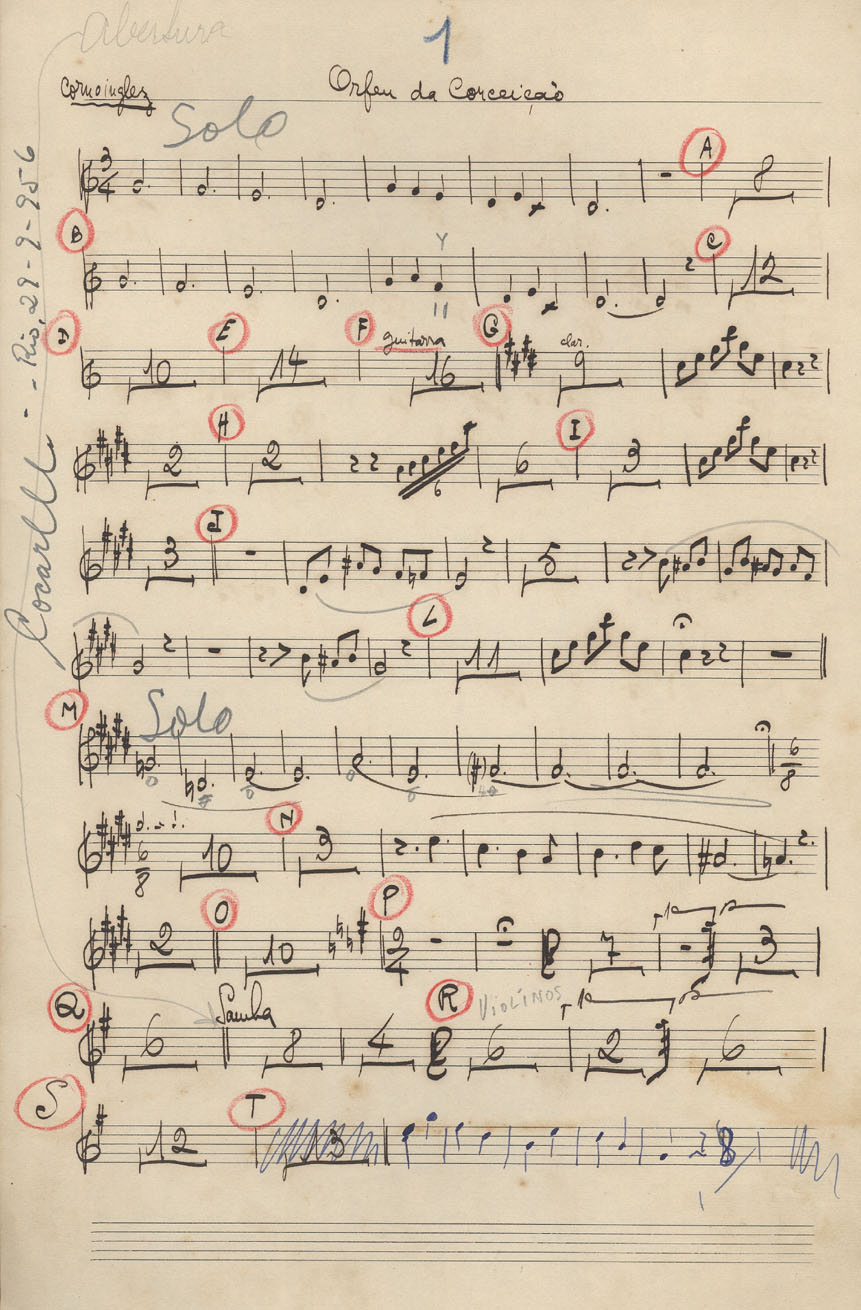 Abertura
1
Cornoinglez
Orfeu da Conceição
Solo
3
4
A
8
B
Y
11
C
12
D
10
E
14
F
guitarra
16
G
clar.
9
2
H
2
6
6
I
3
3
J
5
L
11
M
Solo
6
8
6
8
10
N
3
2
O
10
P
2
4
7
1ª
2ª
3
Q
6
Samba
8
4
R
VIOLINOS
6
1ª
2
2ª
6
S
12
T
13
8